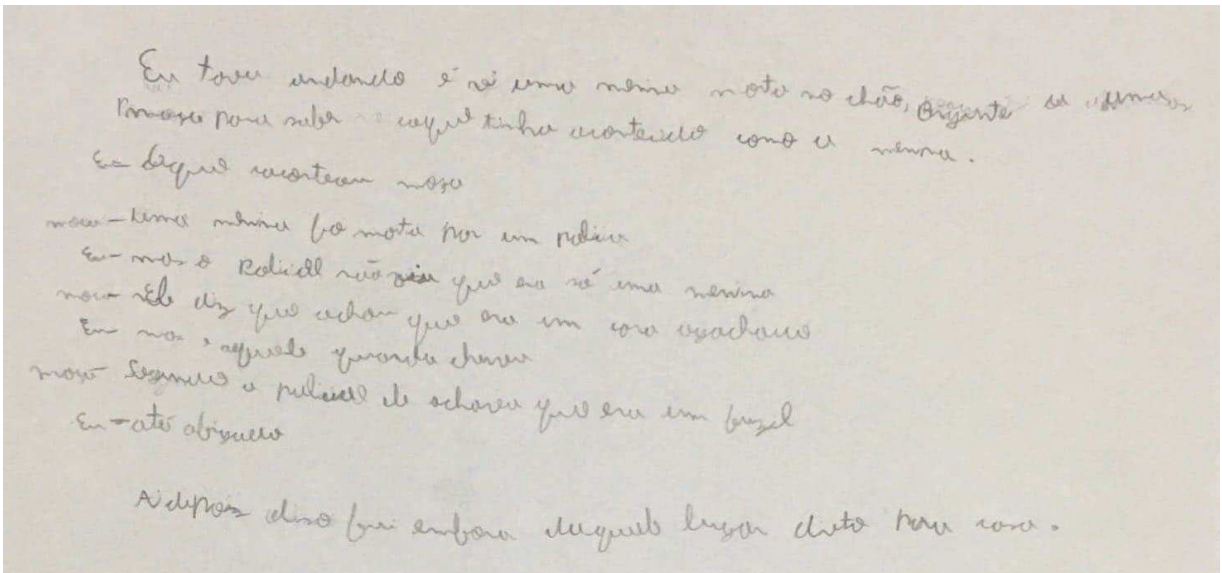 Eu tava andando e vi uma menina mota no chão,
para saber oque tinha acontecido como a menina.
Eu- Oque aconteceu moço
moço- Uma menina foi mota por um policia
Eu- mas o Policial não viu que era só uma menina
moço- Ele diz que achou que era um cara
Eu- mas e aquele guarda chuva
moço- Segundo o policial ele achava que era um fuzil
Eu- até
Ai depois diso fui embora daquele lugar direto para casa.